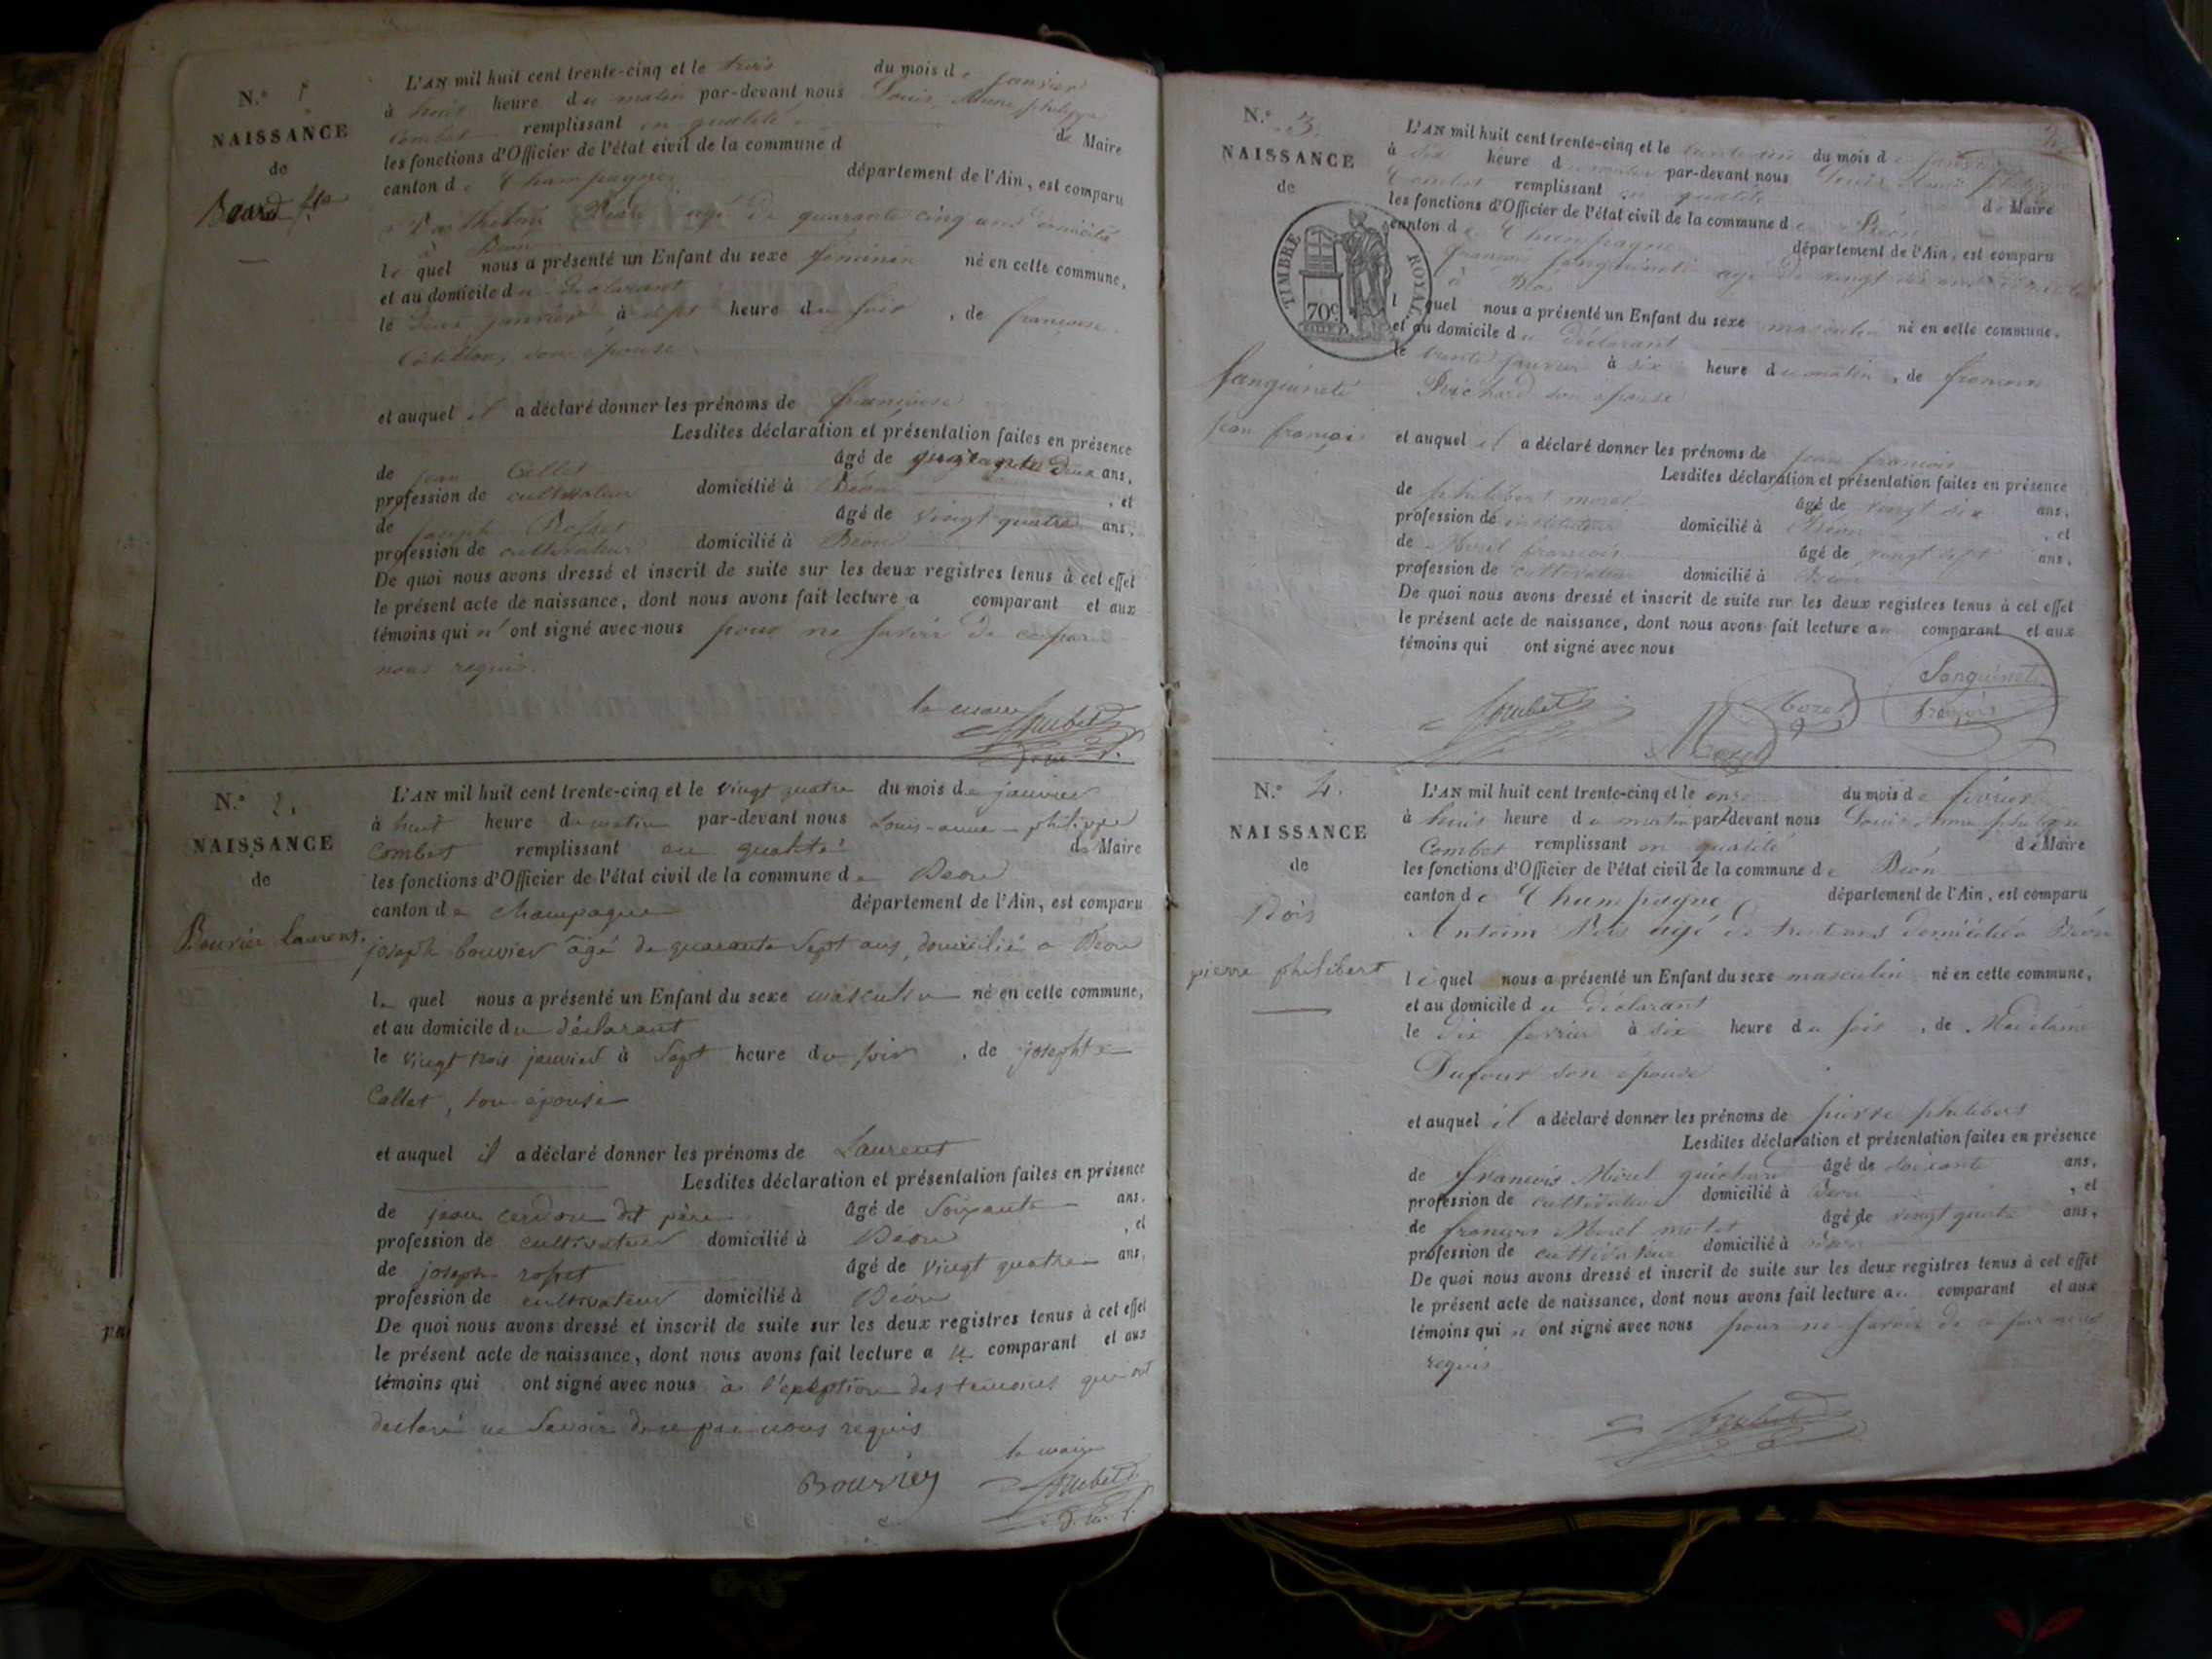 N.º 1
NAISSANCE
de
L'AN mil huit cent trente-cinq et le trois du mois de janvier
à huit heure du matin par-devant nous Louis Anne philippe
Combet remplissant en qualité de Maire
les fonctions d'Officier de l'état civil de la commune d
canton de Champagne département de l'Ain, est comparu
agé de quarante cinq ans domicilié
à Béon
le quel nous a présenté un Enfant du sexe féminin né en cette commune,
et au domicile du déclarant
le deux janvier à sept heure du soir , de françoise
son épouse
et auquel il a déclaré donner les prénoms de françoise
Lesdites déclaration et présentation faites en présence
de jean Callet âgé de quarante deux ans,
profession de cultivateur domicilié à Béon , et
de joseph Rosset âgé de vingt-quatre ans,
profession de cultivateur domicilié à Béon
De quoi nous avons dressé et inscrit de suite sur les deux registres tenus à cet effet
le présent acte de naissance, dont nous avons fait lecture a comparant et aux
témoins qui n'ont signé avec nous pour ne savoir de ce par
nous requis.
le maire
Combet
N.º 2.
NAISSANCE
de
Bouvier Laurent.
L'AN mil huit cent trente-cinq et le vingt quatre du mois de janvier
à huit heure du matin par-devant nous Louis-anne-philippe
Combet remplissant en qualité de Maire
les fonctions d'Officier de l'état civil de la commune de Béon
canton de Champagne département de l'Ain, est comparu
joseph bouvier âgé de quarante sept ans, domicilié à Béon
le quel nous a présenté un Enfant du sexe masculin né en cette commune,
et au domicile du déclarant
le vingt trois janvier à sept heure du soir , de josephte
Callet, son épouse
et auquel il a déclaré donner les prénoms de Laurent
Lesdites déclaration et présentation faites en présence
de jean cerdon dit père âgé de soixante ans,
profession de cultivateur domicilié à Béon , et
de joseph rosset âgé de vingt quatre ans,
profession de cultivateur domicilié à Béon
De quoi nous avons dressé et inscrit de suite sur les deux registres tenus à cet effet
le présent acte de naissance, dont nous avons fait lecture a comparant et aux
témoins qui ont signé avec nous à l'exeption des témoins qui ont
déclaré ne savoir de ce par nous requis
le maire
Bouvier Combet
N.º 3.
NAISSANCE
de
TIMBRE ROYAL
70c
Sanguineti
jean françois
L'AN mil huit cent trente-cinq et le trente un du mois de janvier
à dix heure du matin par-devant nous Louis Anne philippe
Combet remplissant en qualité de Maire
les fonctions d'Officier de l'état civil de la commune de Béon
canton de Champagne département de l'Ain, est comparu
françois Sanguineti agé de vingt six ans
l quel nous a présenté un Enfant du sexe masculin né en cette commune,
et au domicile du déclarant
le trente janvier à six heure du matin , de françoise
Richard son épouse
et auquel il a déclaré donner les prénoms de jean françois
Lesdites déclaration et présentation faites en présence
de philibert morel âgé de vingt six ans,
profession de instituteur domicilié à Béon , et
de Morel françois âgé de vingt sept ans,
profession de cultivateur domicilié à Béon
De quoi nous avons dressé et inscrit de suite sur les deux registres tenus à cet effet
le présent acte de naissance, dont nous avons fait lecture au comparant et aux
témoins qui ont signé avec nous
Combet Morel Sanguineti
françois
Morel
N.º 4.
NAISSANCE
de
Bois
pierre philibert
L'AN mil huit cent trente-cinq et le onze du mois de février
à huit heure du matin par-devant nous Louis Anne philippe
Combet remplissant en qualité de Maire
les fonctions d'Officier de l'état civil de la commune de Béon
canton de Champagne département de l'Ain, est comparu
Antoine Bois agé de trente ans domicilié à Béon
le quel nous a présenté un Enfant du sexe masculin né en cette commune,
et au domicile du déclarant
le dix février à six heure du soir , de Madelaine
Dufour son épouse
et auquel il a déclaré donner les prénoms de pierre philibert
Lesdites déclaration et présentation faites en présence
de françois Morel âgé de soixante ans,
profession de cultivateur domicilié à Béon , et
de françois Morel âgé de vingt quatre ans,
profession de cultivateur domicilié à Béon
De quoi nous avons dressé et inscrit de suite sur les deux registres tenus à cet effet
le présent acte de naissance, dont nous avons fait lecture au comparant et aux
témoins qui n'ont signé avec nous pour ne savoir de ce par nous
requis
Combet